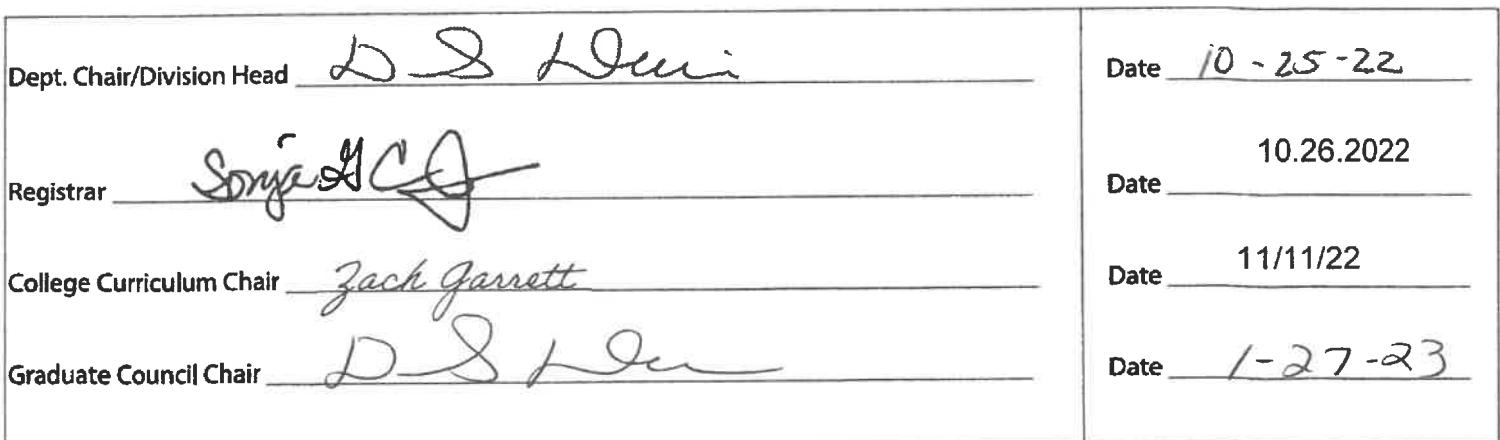 Dept. Chair/Division Head D S Date 10-25-22
10.26.2022
Registrar Sonja G C Date
College Curriculum Chair Zack Garrett Date 11/11/22
Graduate Council Chair D S Date 1-27-23